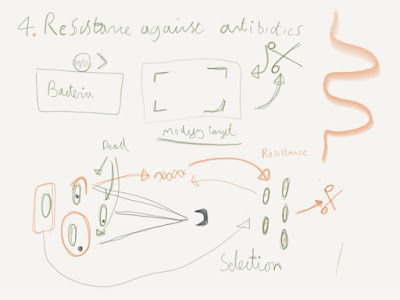 4. Resistance against antibiotics
Bacteria
modify target
Dead
Resistance
Selection